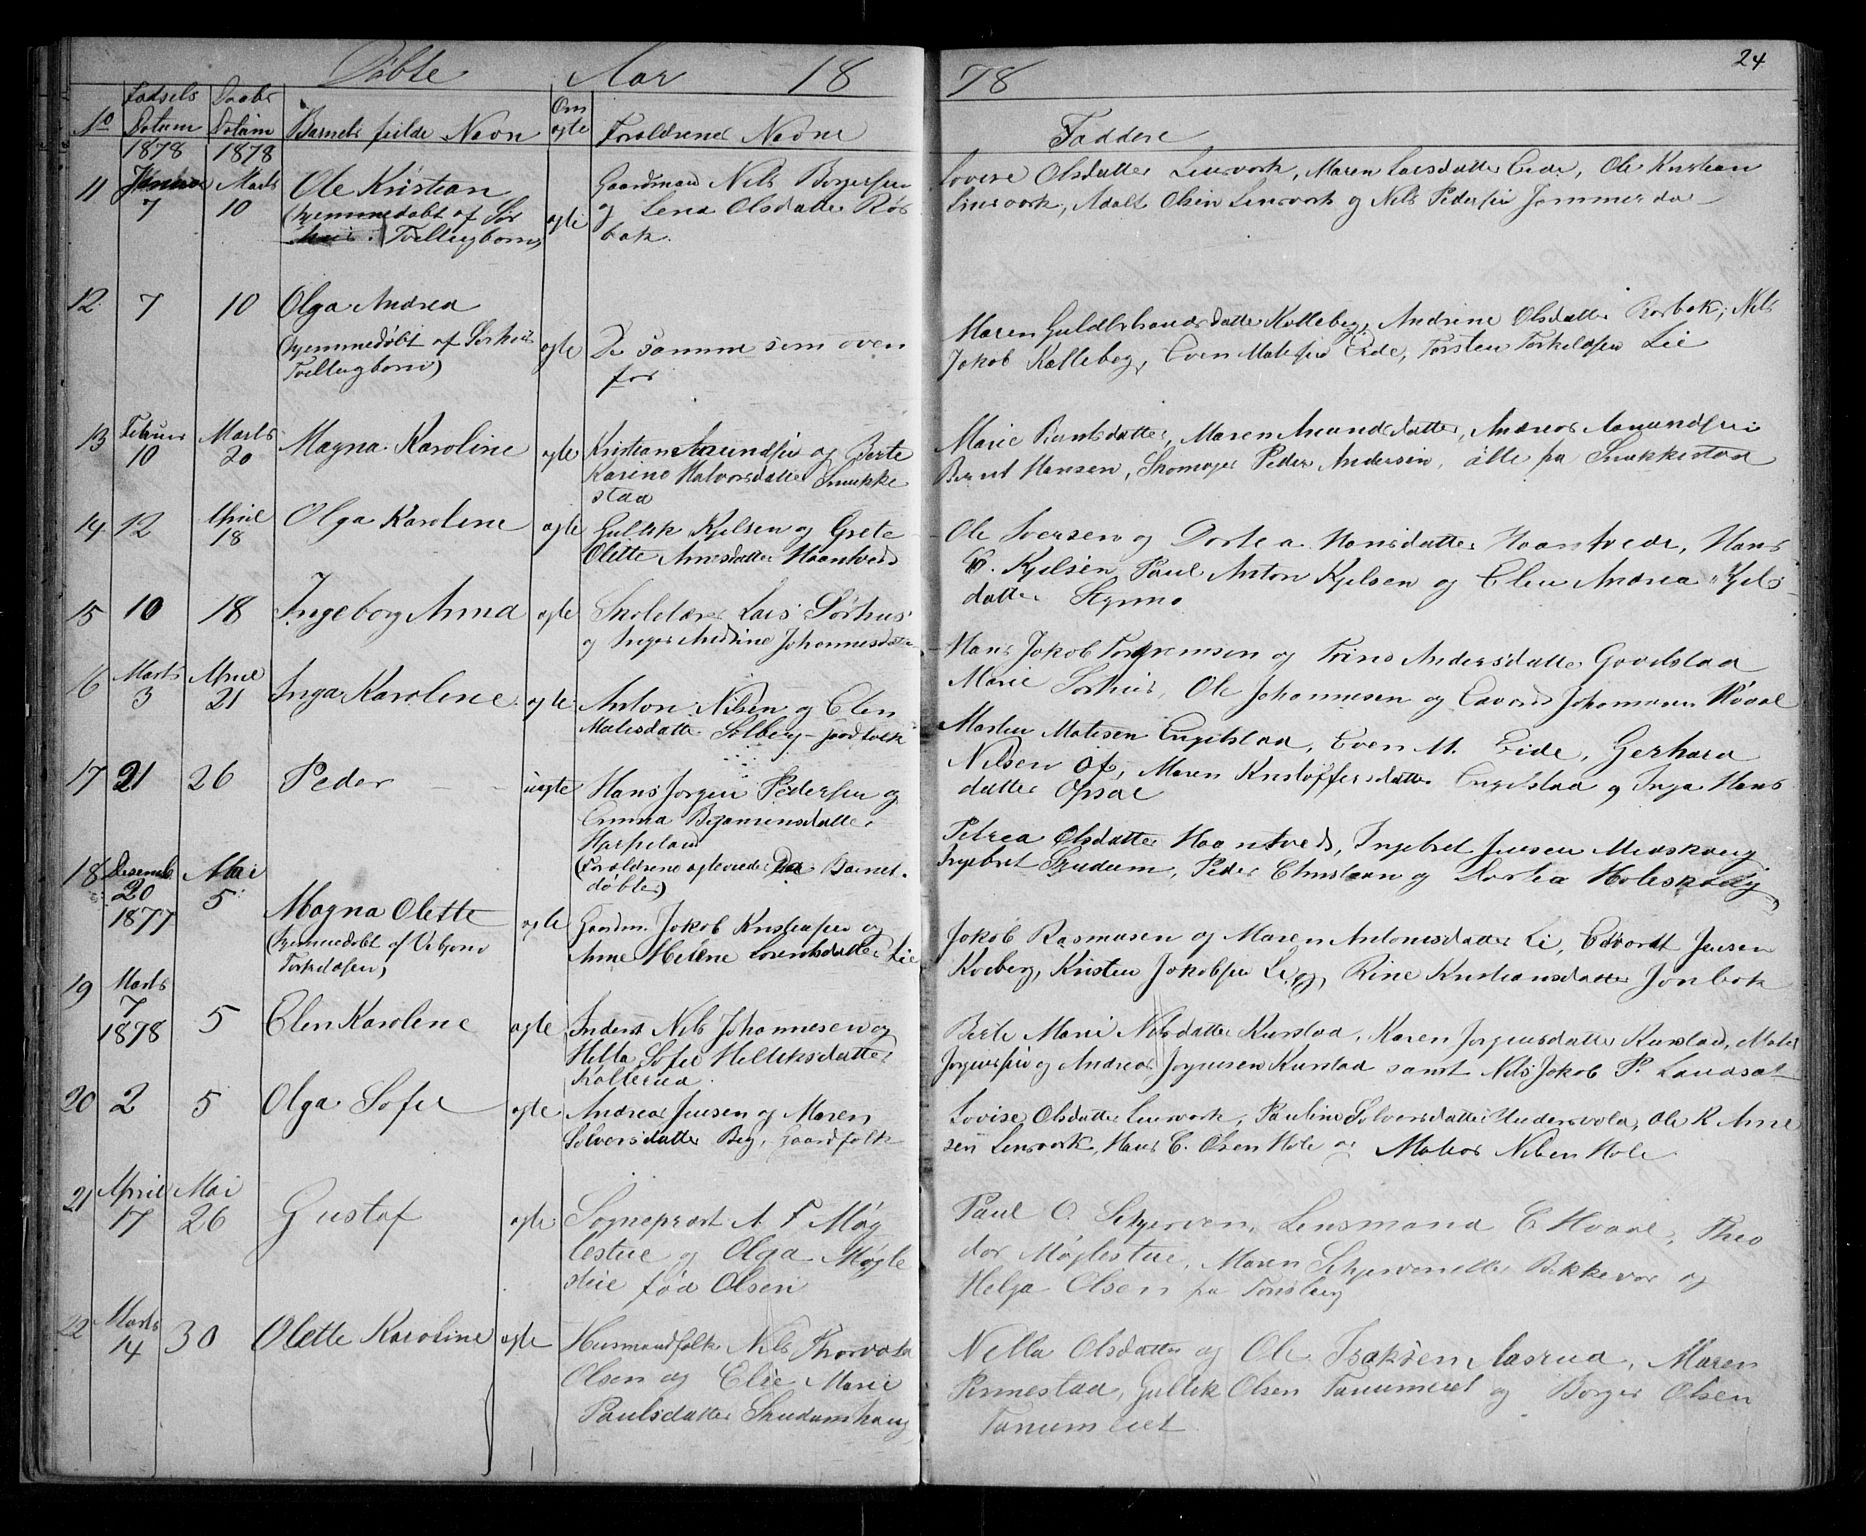 Døbte Aar 1878
24
No Fødsels Datum Daabs Datum Barnets fulde Navn Om ægte Forældrenes Navne Faddere
1878 1878
11 Januar 7 Marts 10 Ole Kristian
(hjemmedøbt af Sør
Tvillingbørn) ægte
Gaardmand Nils Borgersen
og Lena Olsdatter Rør
bak.
Lovise Olsdatter Linvork, Maren Larsdatter Eide, Ole Kristian
Linvork, Adolt Olsen Linvork og Nils Pedersen Jammerda
12. 7 10 Olga Andrea
(hjemmedøbt af Sørhus
Tvillingbørn) ægte
De samme som oven
for
Maren Guldbrandsdatter Kolleberg, Andrine Olsdatter Rorbak, Nils
Jakob Kolleberg, Even Matisen Eide, Torsten Torkildsen Lie
13 Februar 10 Marts 20 Magna Karoline ægte
Kristian Amundsen og Berte
Karine Halvorsdatter Snække
stad
Marie Berntsdatter, Maren Amundsdatter, Andreas Amundsen
Bernt Hansen, Skomager Peder Andersen, alle på Snækkestad
14 12 April 18 Olga Karoline ægte
Gullik Kjelsen og Grete
Olette Arnesdatter Haantveds
Ole Iversen og Dortea Hansdatter Haantvedt, Hans
E. Kjelsen, Paul Anton Kjelsen og Elen Andrea Kjels
datter Stymne
15 10 18 Ingeborg Anna ægte
Skolelærer Lars Sørhus
og Inger Andrine Johannesdatter
Hans Jakob Torgrimsen og Trine Andersdatter Gavelstad
Marie Sørhus, Ole Johannesen og Edvard Johannesen Hvaal
6 Marts 3 April 21 Inga Karoline ægte
Anton Nilsen og Elen
Matisdatter Solberg gaardfolk
Martin Matisen Engelstad, Even M. Eide, Gerhard
Nilsen Of, Maren Kristoffersdatter Engelstad og Inga Hans
datter Opsal
17 21 26 Peder uægte
Hans Jørgen Pedersen og
Emma Benjaminsdatter
(Forældrene ægteviede da Barnet
døbtes)
Petrea Olsdatter Haantveds, Ingebret Jensen Moskoug
Ingebret Skudum, Peder Christian og Dortea Holeskoug
18 Desemb 20 1877 Mai 5 Magna Olette
(hjemmedøbt af Vebjørn
Torkildsen) ægte
Gaardm. Jakob Kristiansen og
Anne Helene Lorentsdatter Lie
Jakob Rasmusen og Maren Antonisdatter Li, Edvardt Jensen
Kobberg, Kristen Jakobsen Li og Rine Kristiansdatter Jonbak
19 Marts 7 1878 5 Elen Karoline ægte
Inderst Nils Johannesen og
Hella Sofie Helliksdatter
Kolterud
Berte Marie Nilsdatter Kurstad, Karen Jørgensdatter Kurstad, Matis
Jørgensen og Andreas Jørgensen Kurstad samt Nils Jakob P. Laudsal
20 2 5 Olga Sofie ægte
Andreas Jensen og Maren
Solversdatter Berg, gaardfolk
Lovise Olsdatter Linvork, Pauline Solversdatter Undersvold, Ole K Arne
sen Linvork, Hans C. Olsen Hole og Matias Nilsen Hole
21 April 17 Mai 26 Gustaf ægte
Sogneprest A F Møg
lestue og Olga Møgle
stue fød Olsen
Paul O. Schjerven, Lensmand E Hvaal, Theo
dor Møglestue, Maren Schjerven Bakkevar og
Helga Olsen fra Tønsberg
22 Marts 14 30 Olette Karoline ægte
Husmandfolk Nils Thorvald
Olsen og Elie Marie
Paulsdatter Skudumhaug
Nella Olsdatter og Ole Isaksen Aasrud, Maren
Pennestad, Gullik Olsen Tanumeiet og Borger Olsen
Tanumeiet